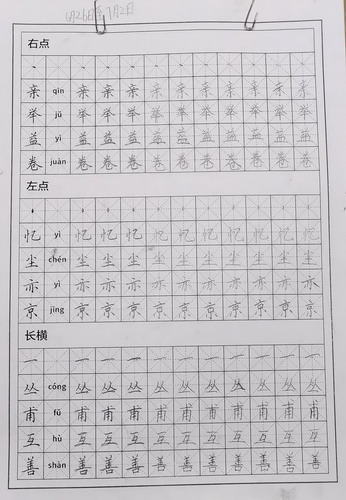 6月26日至7月2日
右点
丶 丶 丶 丶 丶 丶 丶 丶 丶 丶 丶
亲 qīn 亲 亲 亲 亲 亲 亲 亲 亲 亲 亲
举 jǔ 举 举 举 举 举 举 举 举 举 举
益 yì 益 益 益 益 益 益 益 益 益 益
卷 juàn 卷 卷 卷 卷 卷 卷 卷 卷 卷 卷
左点
忆 yì 忆 忆 忆 忆 忆 忆 忆 忆 忆 忆
尘 chén 尘 尘 尘 尘 尘 尘 尘 尘 尘 尘
亦 yì 亦 亦 亦 亦 亦 亦 亦 亦 亦 亦
京 jīng 京 京 京 京 京 京 京 京 京 京
长横
一 一 一 一 一 一 一 一 一 一 一
丛 cóng 丛 丛 丛 丛 丛 丛 丛 丛 丛 丛
甫 fǔ 甫 甫 甫 甫 甫 甫 甫 甫 甫 甫
互 hù 互 互 互 互 互 互 互 互 互 互
善 shàn 善 善 善 善 善 善 善 善 善 善